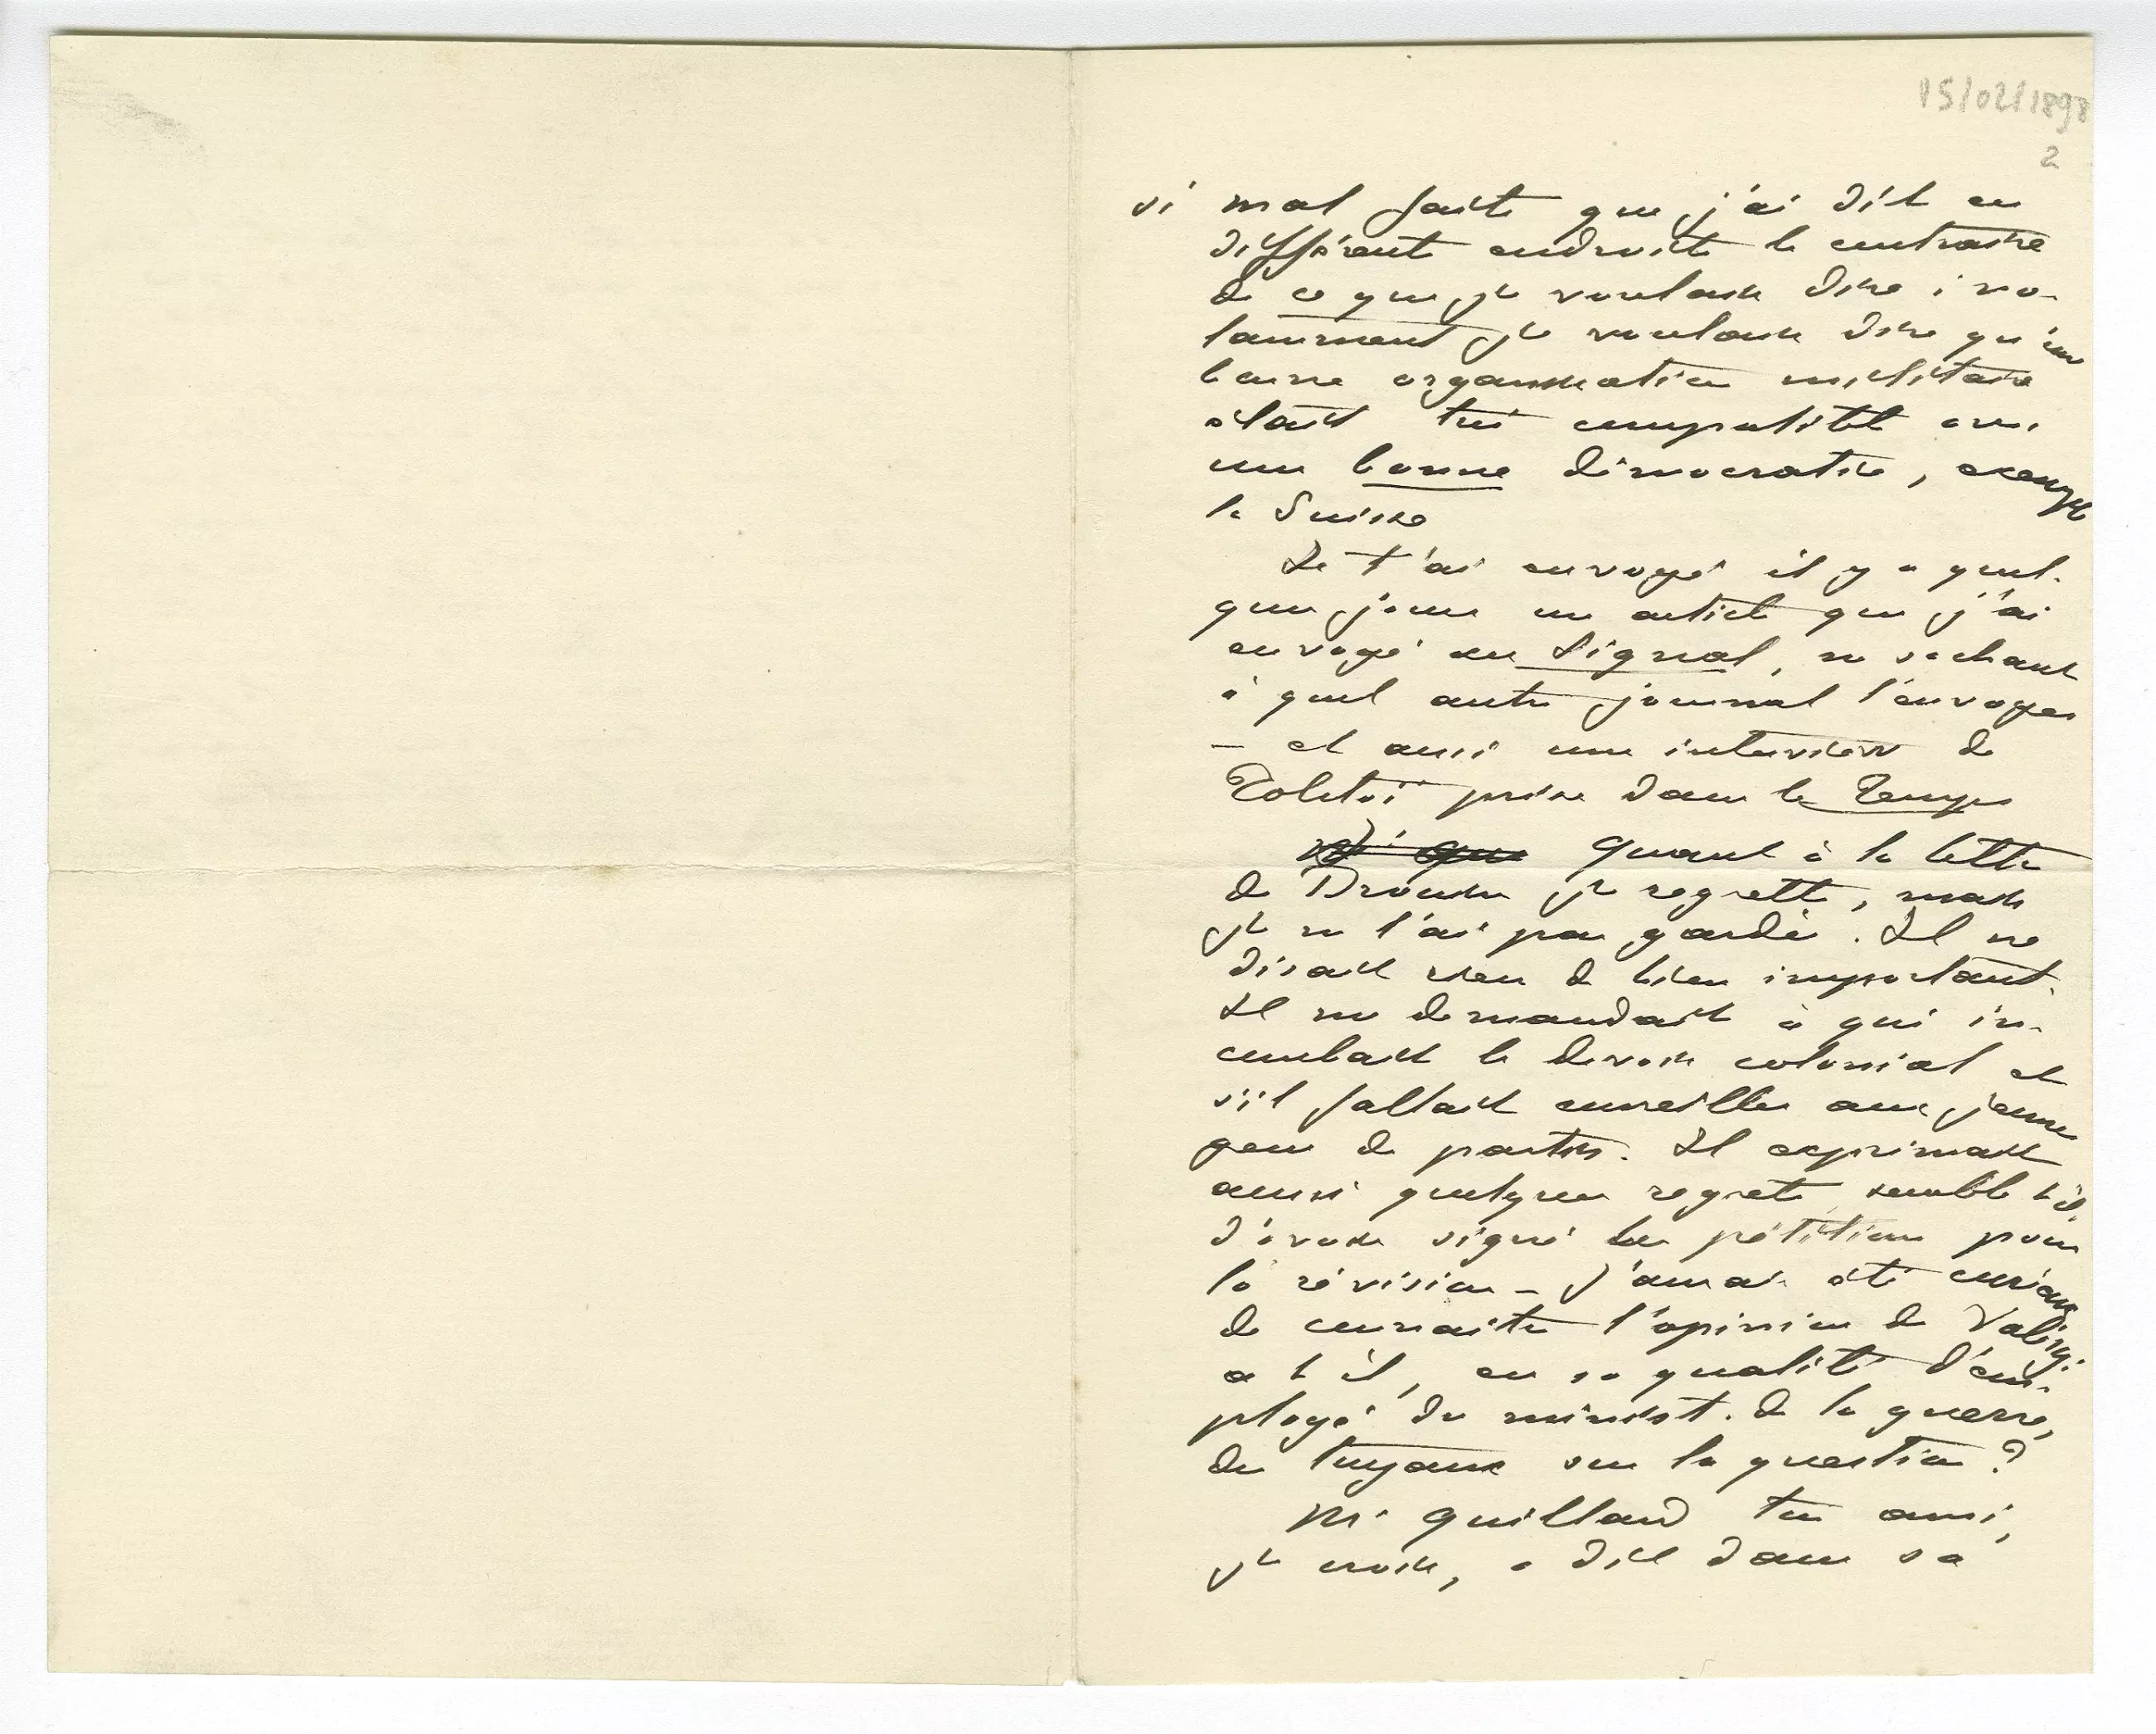 15/02/1898
2
si mal faite que j'ai dit en
différents endroits le contraire
de ce que je voulais dire ; no-
tamment je voulais dire qu'une
bonne organisation militaire
était très compatible avec
une bonne démocratie, exemple
la Suisse
Je t'ai envoyé il y a quel-
ques jours un article que j'ai
envoyé au Signal, ne sachant
à quel autre journal l'envoyer
– et aussi une interview de
Tolstoï prise dans le Temps
Quant à la lettre
de Drouin je regrette, mais
je ne l'ai pas gardée. Il ne
disait rien de bien important.
Il me demandait à qui in-
combait le devoir colonial et
s'il fallait conseiller aux jeunes
gens de partir. Il exprimait
aussi quelques regrets, semble t'il,
d'avoir signé la pétition pour
la révision – J'aurais été curieux
de connaître l'opinion de Valéry.
a t il, en sa qualité d'em-
ployé du minist. de la guerre,
des tuyaux sur la question ?
Mr Quillard ton ami,
je crois, a dit dans sa